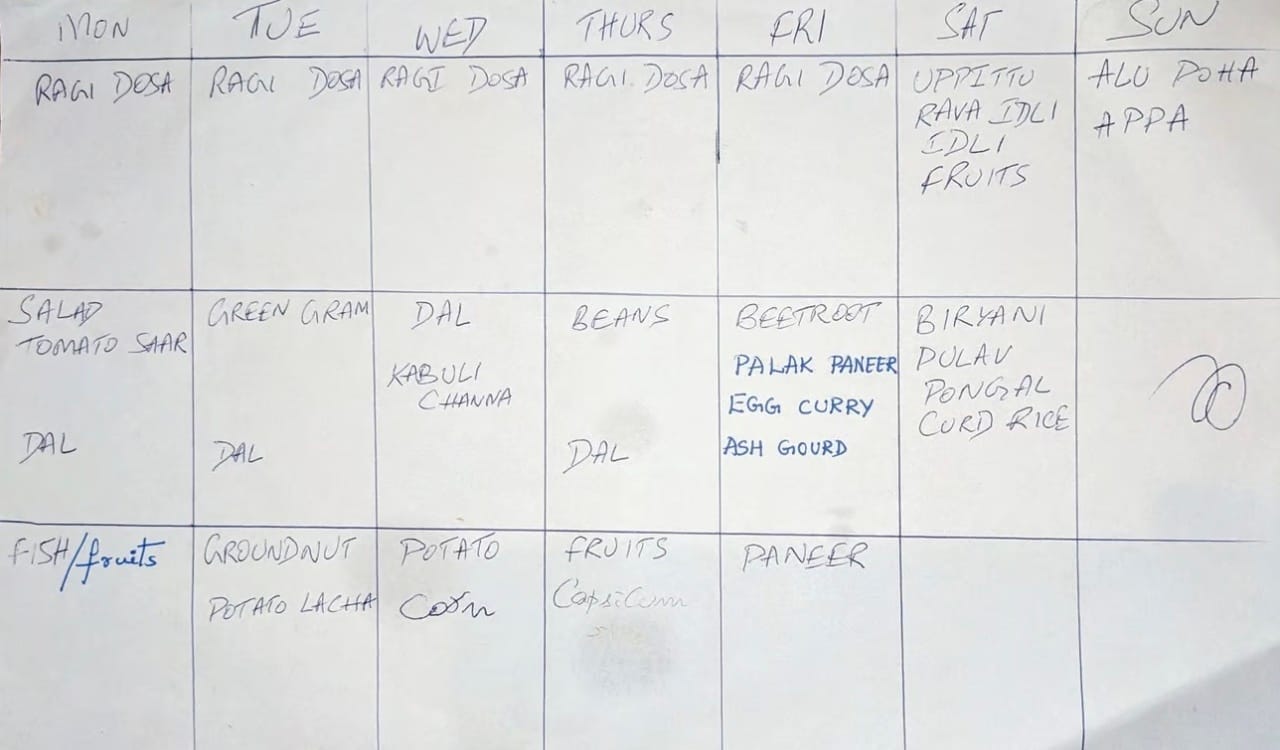 MON TUE WED THURS FRI SAT SUN
RAGI DOSA
RAGI DOSA
RAGI DOSA
RAGI. DOSA
RAGI DOSA
UPPITTU
RAVA IDLI
IDLI
FRUITS
ALU POHA
APPA
SALAD
TOMATO SAAR
DAL
GREEN GRAM
DAL
DAL
KABULI
CHANNA
BEANS
DAL
BEETROOT
PALAK PANEER
EGG CURRY
ASH GOURD
BIRYANI
PULAV
PONGAL
CURD RICE
FISH/fruits
GROUNDNUT
POTATO LACHA
POTATO
Corn
FRUITS
Capsicum
PANEER